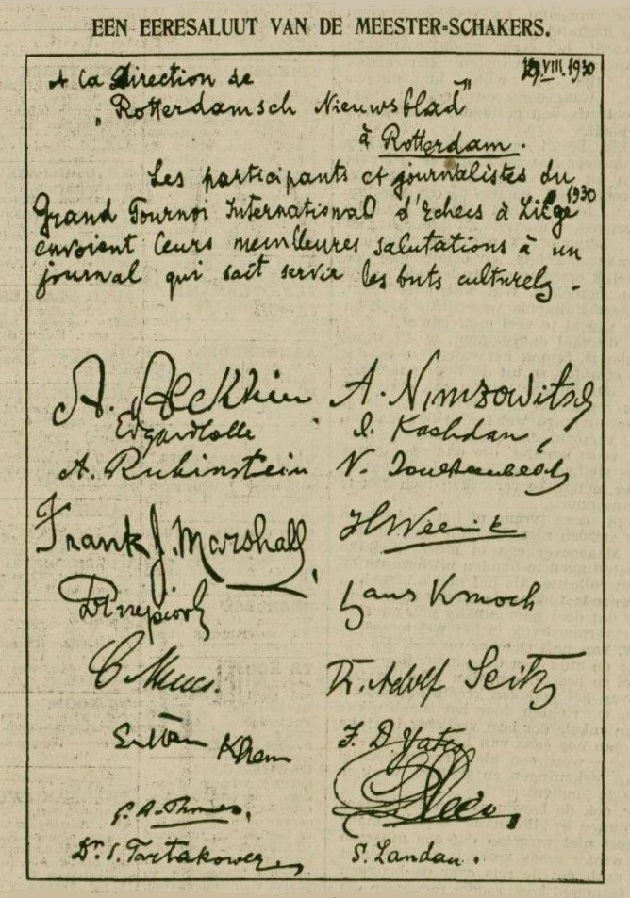 EEN EERESALUUT VAN DE MEESTER=SCHAKERS.
VIII. 1930
A la Direction de
„Rotterdamsch Nieuwsblad"
à Rotterdam.
Les participants et journalistes du
Grand Tournoi International d'Echecs à Liège 1930
envoient leurs meilleures salutations à un
journal qui sait servir les buts culturels.
A. Alekhin A. Nimzowitsch
Edgard Colle I. Kashdan
A. Rubinstein N.
Frank J. Marshall H Weenink
D. Przepiorka Hans Kmoch
Dr. Adolf Seitz
Sultan Khan F. D. Yates
G. A. Thomas
Dr. S. Tartakower S. Landau.